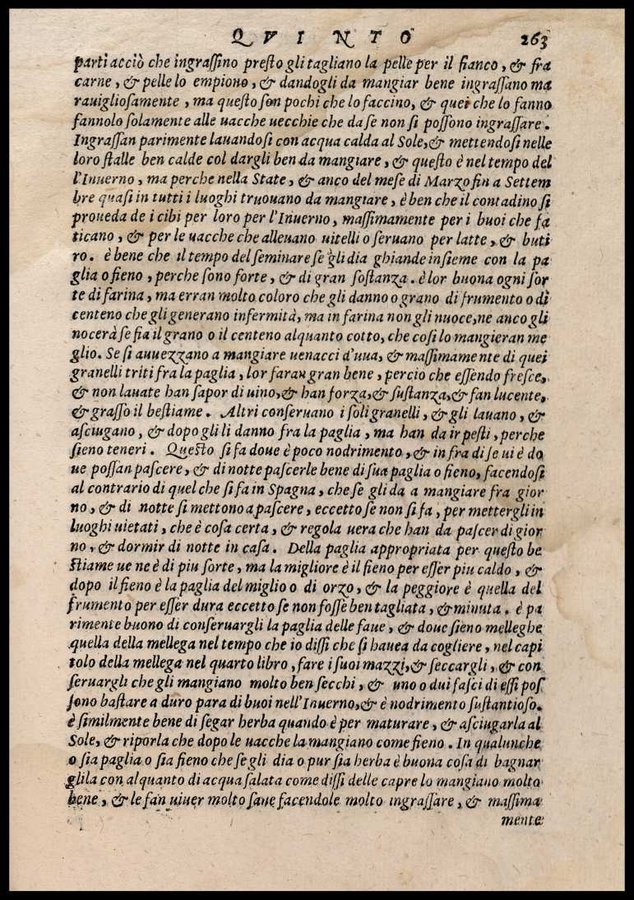 QVINTO 263
parti acciò che ingraſſino preſto gli tagliano la pelle per il fianco, & fra
carne, & pelle lo empiono, & dandogli da mangiar bene ingraſſano ma
rauigliosamente, ma queſto ſon pochi che lo faccino, & quei che lo fanno
fannolo ſolamente alle uacche uecchie che da ſe non ſi poſſono ingraſſare.
Ingraſſan parimente lauandoſi con acqua calda al Sole, & mettendoſi nelle
loro ſtalle ben calde col dargli ben da mangiare, & queſto è nel tempo del
l'Inuerno, ma perche nella State, & anco del meſe di Marzo fin a Settem
bre quaſi in tutti i luoghi truouano da mangiare, è ben che il contadino ſi
proueda de i cibi per loro per l'Inuerno, maſſimamente per i buoi che fa
ticano, & per le uacche che alleuano uitelli o ſeruano per latte, & buti
ro. è bene che il tempo del ſeminare ſe gli dia ghiande inſieme con la pa
glia o fieno, perche ſono forte, & di gran ſoſtanza. è lor buona ogni ſor
te di farina, ma erran molto coloro che gli danno o grano di frumento o di
centeno che gli generano infermità, ma in farina non gli nuoce, ne anco gli
nocerà ſe ſia il grano o il centeno alquanto cotto, che coſi lo mangieran me
glio. Se ſi auuezzano a mangiare uenacci d'uua, & maſſimamente di quei
granelli triti fra la paglia, lor faran gran bene, percio che eſſendo freſce,
& non lauate han ſapor di uino, & han forza, & ſuſtanza, & fan lucente,
& graſſo il beſtiame. Altri conſeruano i ſoli granelli, & gli lauano, &
aſciugano, & dopo gli li danno fra la paglia, ma han da ir peſti, perche
ſieno teneri. Queſto ſi fa doue è poco nodrimento, & in fra di ſe ui è do
ue poſſan paſcere, & di notte paſcerle bene di ſua paglia o fieno, facendoſi
al contrario di quel che ſi fa in Spagna, che ſe gli da a mangiare fra gior
no, & di notte ſi mettono a paſcere, eccetto ſe non ſi fa, per mettergli in
luoghi uietati, che è coſa certa, & regola uera che han da paſcer di gior
no, & dormir di notte in caſa. Della paglia appropriata per queſto be
ſtiame ue ne è di piu ſorte, ma la migliore è il fieno per eſſer piu caldo, &
dopo il fieno è la paglia del miglio o di orzo, & la peggiore è quella del
frumento per eſſer dura eccetto ſe non foſſe ben tagliata, & minuta. è pa
rimente buono di conſeruargli la paglia delle faue, & doue ſieno melleghe
quella della mellega nel tempo che io diſſi che ſi hauea da cogliere, nel capi
tolo della mellega nel quarto libro, fare i ſuoi mazzi, & ſeccargli, & con
ſeruargli che gli mangiano molto ben ſecchi, & uno o dui faſci di eſſi poſ
ſono baſtare a duro para di buoi nell'Inuerno, & è nodrimento ſuſtantioſo.
è ſimilmente bene di ſegar herba quando è per maturare, & aſciugarla al
Sole, & riporla che dopo le uacche la mangiano come fieno. In qualunche
o ſia paglia o ſia fieno che ſe gli dia o pur ſia herba è buona coſa di bagnar
glila con alquanto di acqua ſalata come diſſi delle capre lo mangiano molto
bene, & le fan uiuer molto ſane facendole molto ingraſſare, & maſſima
mente